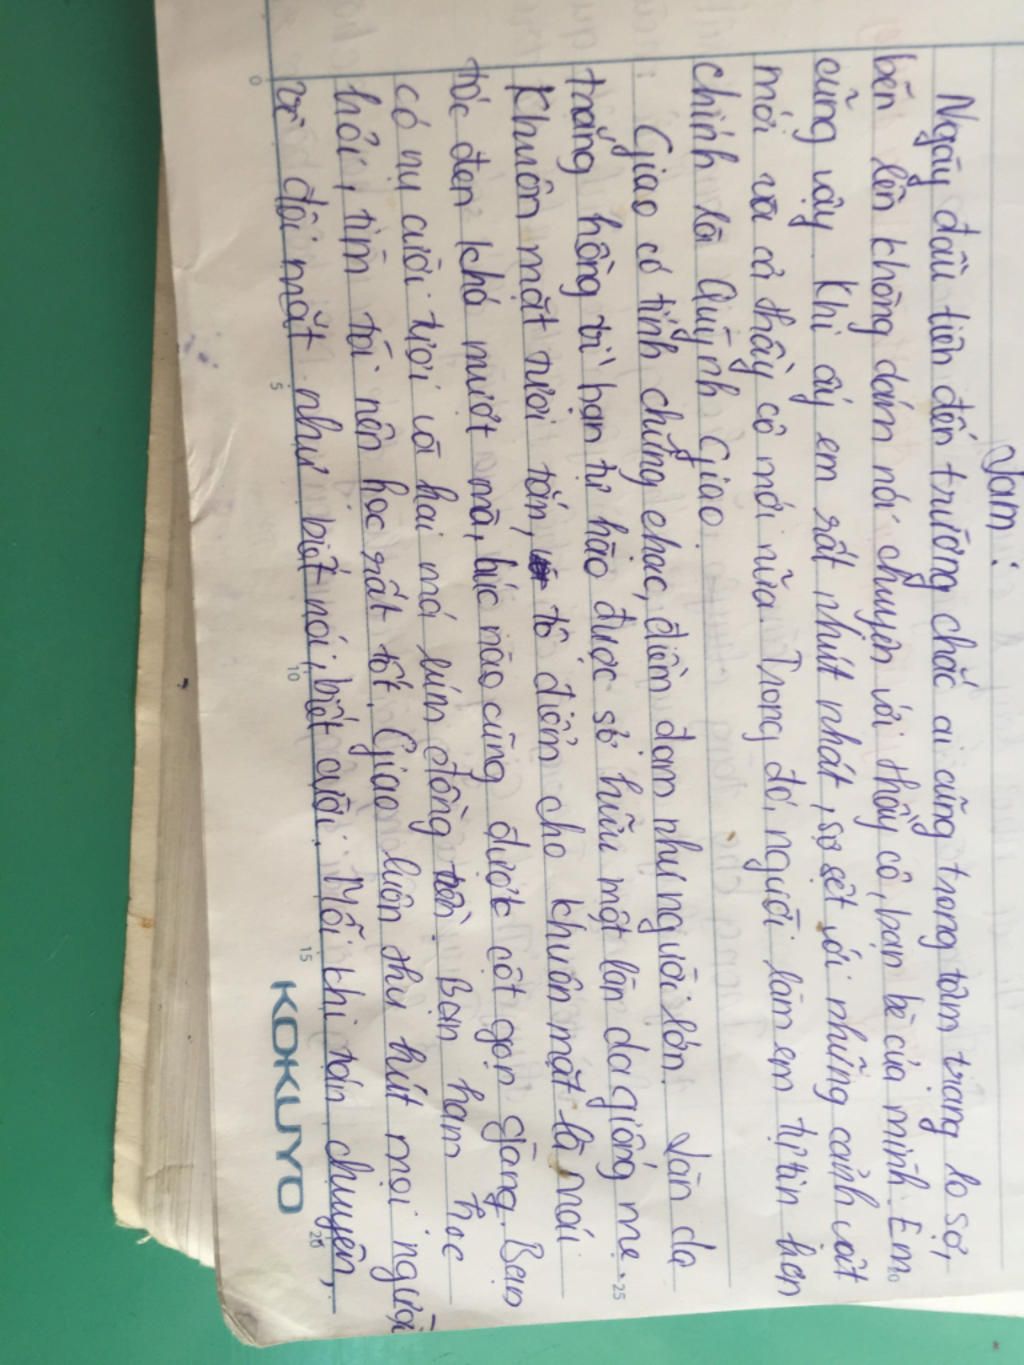 Jam:
Ngày đầu tiên đến trường chắc ai cũng trong tâm trạng lo sợ,
bẽn lên không dám nói chuyện với thầy cô, bạn bè của mình. Em
cũng vậy. Khi ấy em rất nhút nhát, sợ sệt với những cảnh vật
mới và cả thầy cô mới nữa. Trong đó, người làm em tự tin hơn
chính là Quỳnh Giao.
Giao có tính chững chạc, điềm đạm như người lớn. Làn da
trắng hồng vì bạn tự hào được sở hữu một làn da giống mẹ.
Khuôn mặt tươi tắn, tô điểm cho khuôn mặt là mái
tóc đen khá mượt mà, lúc nào cũng được cột gọn gàng. Bạn
có nụ cười tươi và hai má lúm đồng tiền. Bạn ham học
hỏi, tìm tòi nên học rất tốt. Giao luôn thu hút mọi người
vì đôi mắt như biết nói, biết cười. Mỗi khi trán chuyện,
0 5 10 15 20 25 30
KOKUYO